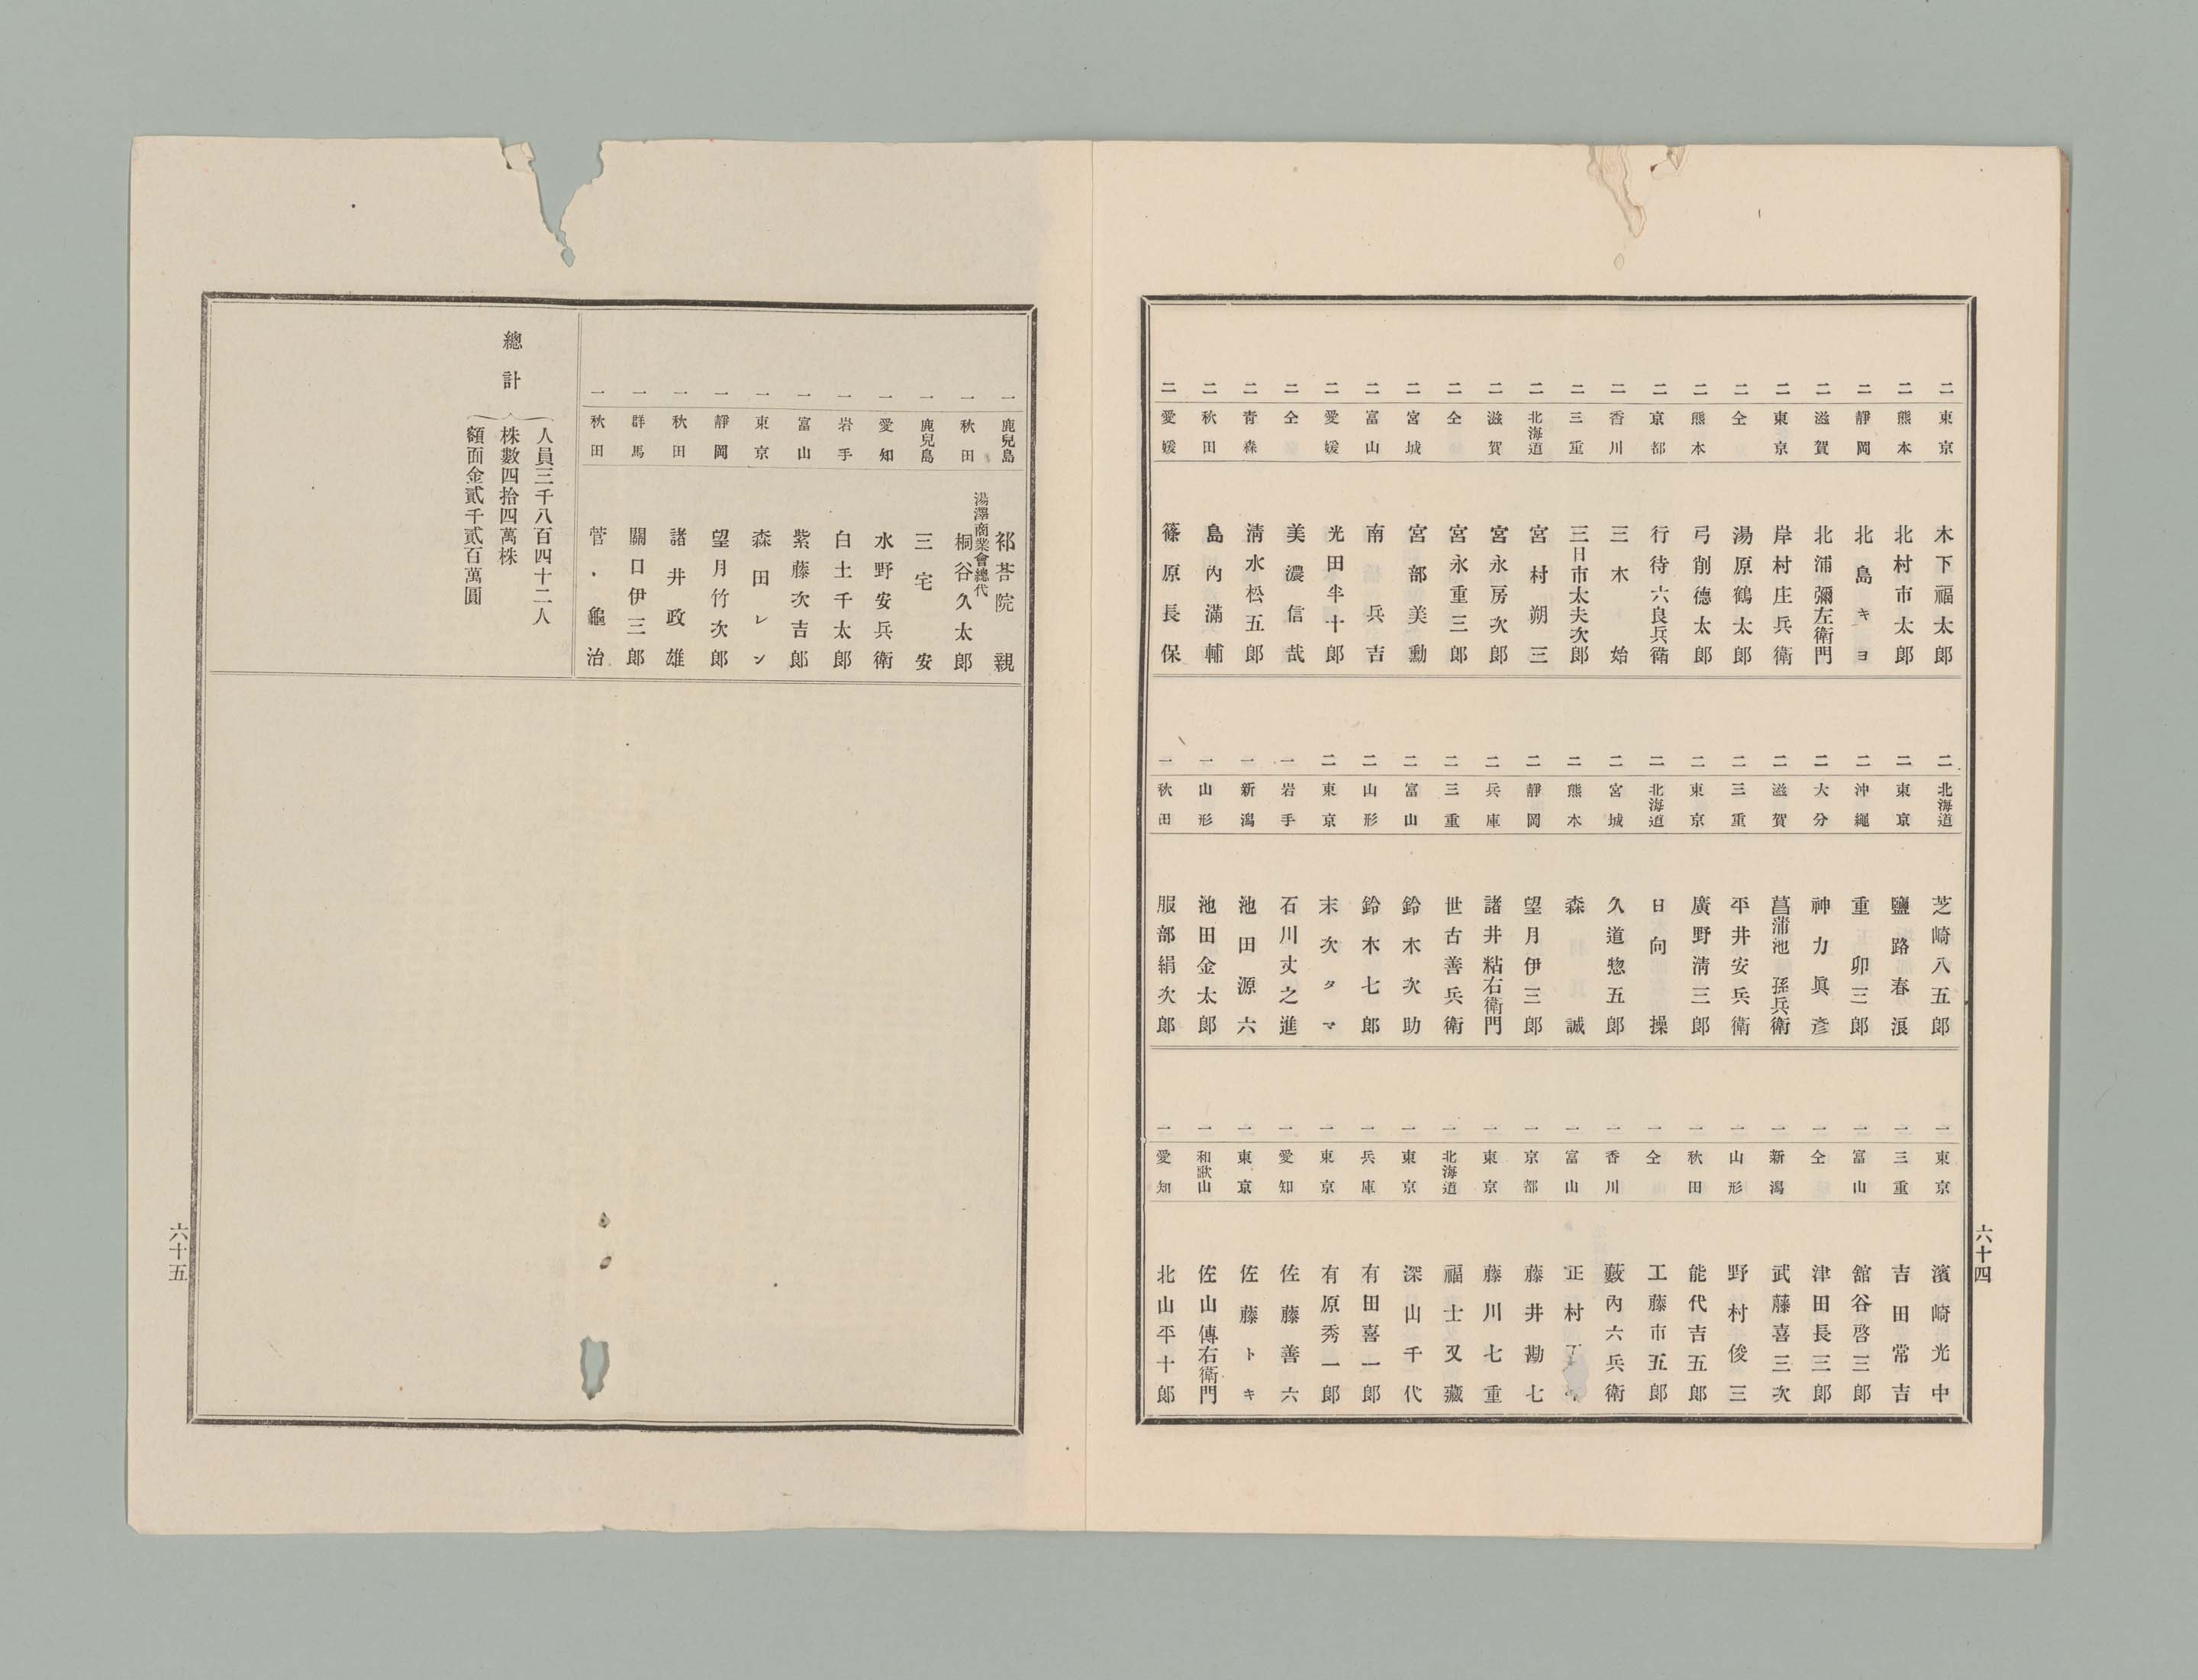 六十四
二 東京 木下福太郎
二 熊本 北村市太郎
二 靜岡 北島キヨ
二 滋賀 北浦彌左衛門
二 東京 岸村庄兵衛
二 仝 湯原鶴太郎
二 熊本 弓削德太郎
二 京都 行待六良兵衛
二 香川 三木始
二 三重 三日市太夫次郎
二 北海道 宮村朔三
二 滋賀 宮永房次郎
二 仝 宮永重三郎
二 宮城 宮部美勳
二 富山 南兵吉
二 愛媛 光田半十郎
二 仝 美濃信哉
二 青森 淸水松五郎
二 秋田 島內滿輔
二 愛媛 篠原長保
二 北海道 芝崎八五郎
二 東京 鹽路春浪
二 沖繩 重卯三郎
二 大分 神力眞彥
二 滋賀 菖蒲池孫兵衛
二 三重 平井安兵衛
二 東京 廣野淸三郎
二 北海道 日向操
二 宮城 久道惣五郎
二 熊本 森誠
二 靜岡 望月伊三郎
二 兵庫 諸井粘右衛門
二 三重 世古善兵衛
二 富山 鈴木次助
二 山形 鈴木七郎
二 東京 末次タマ
一 岩手 石川丈之進
一 新潟 池田源六
一 山形 池田金太郎
一 秋田 服部絹次郎
一 東京 濱崎光中
一 三重 吉田常吉
一 富山 舘谷啓三郎
一 仝 津田長三郎
一 新潟 武藤喜三次
一 山形 野村俊三
一 秋田 能代吉五郎
一 仝 工藤市五郎
一 香川 藪內六兵衛
一 富山 正村
一 京都 藤井勘七
一 東京 藤川七重
一 北海道 福士又藏
一 東京 深山千代
一 兵庫 有田喜一郎
一 東京 有原秀一郎
一 愛知 佐藤善六
一 東京 佐藤トキ
一 和歌山 佐山傳右衛門
一 愛知 北山平十郎
一 鹿兒島 祁答院親
一 秋田 湯澤商業會總代 桐谷久太郎
一 鹿兒島 三宅安
一 愛知 水野安兵衛
一 岩手 白土千太郎
一 富山 紫藤次吉郎
一 東京 森田レン
一 靜岡 望月竹次郎
一 秋田 諸井政雄
一 群馬 關口伊三郎
一 秋田 菅龜治
總計
人員三千八百四十二人
株數四拾四萬株
額面金貳千貳百萬圓
六十五